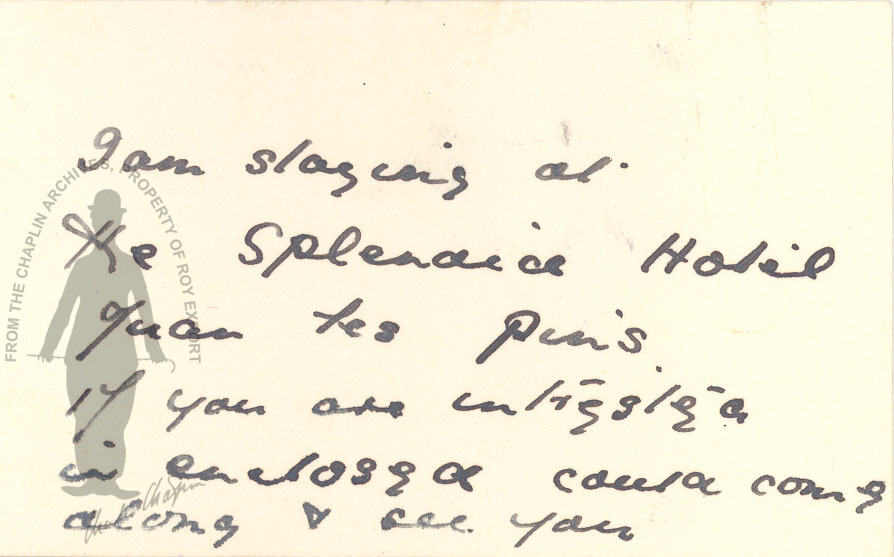 I am staying at
The Splendid Hotel
Juan les Pins
if you are interested
in enclosed could come
along & see you
FROM THE CHAPLIN ARCHIVES, PROPERTY OF ROY EXPORT
Charlie Chaplin